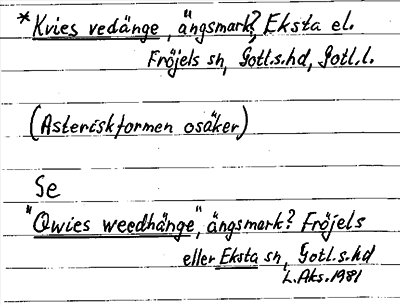 *Kvies vedänge, ängsmark? Eksta el.
Fröjels sn, Gotl.s.hd, Gotl.l.
(Asteriskformen osäker)
Se
"Qwies weedhänge", ängsmark? Fröjels
eller Eksta sn, Gotl.s.hd
L.Aks. 1981